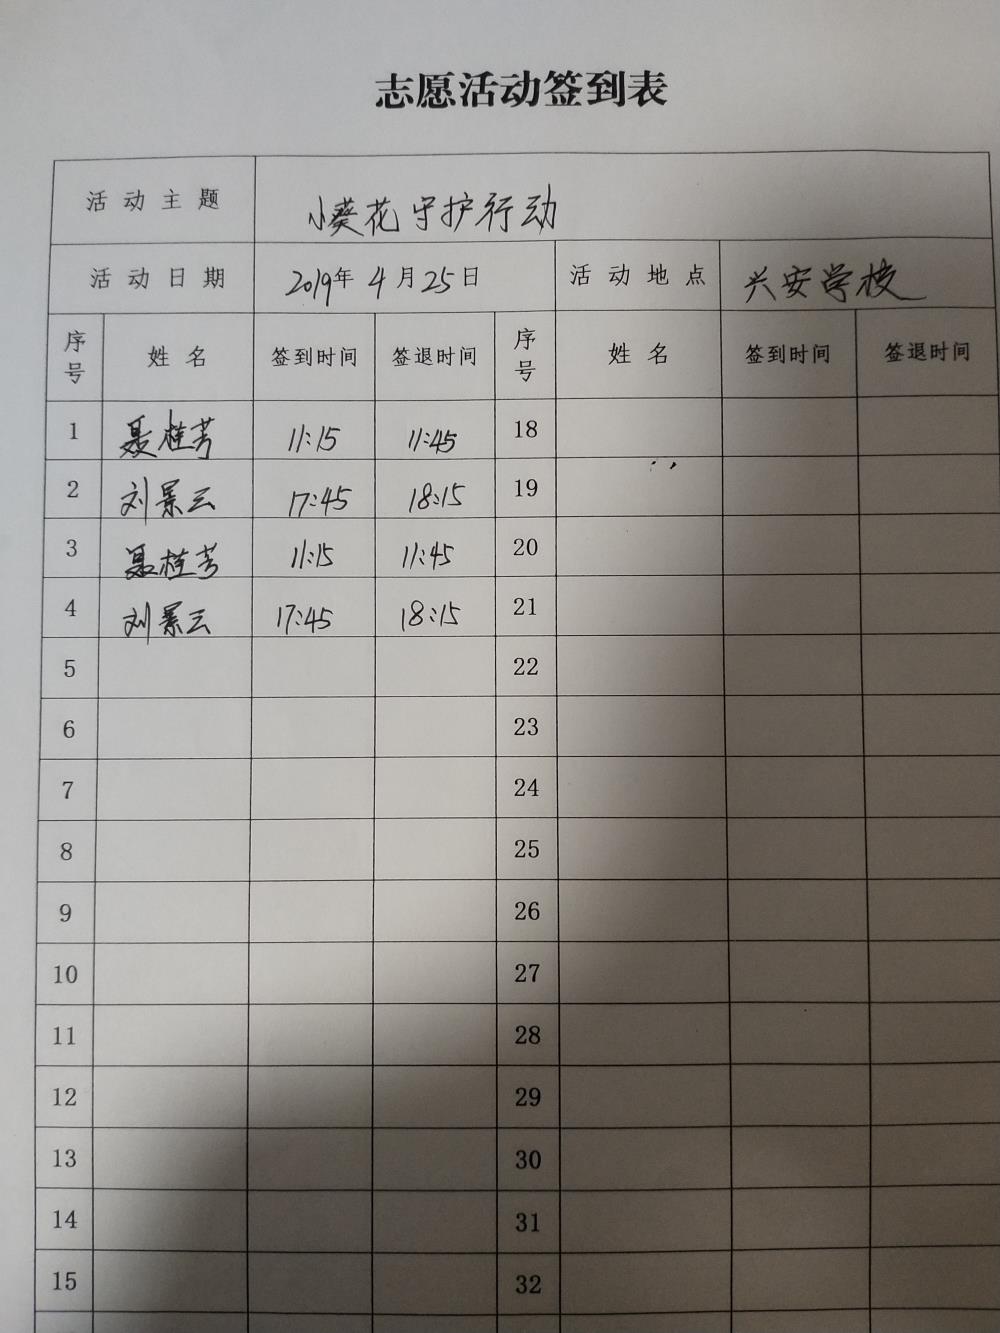 志愿活动签到表
活动主题 小葵花守护行动
活动日期 2019年4月25日 活动地点 兴安学校
序号 姓名 签到时间 签退时间 序号 姓名 签到时间 签退时间
1 聂桂芳 11:15 11:45 18
2 刘景云 17:45 18:15 19
3 聂桂芳 11:15 11:45 20
4 刘景云 17:45 18:15 21
5 22
6 23
7 24
8 25
9 26
10 27
11 28
12 29
13 30
14 31
15 32